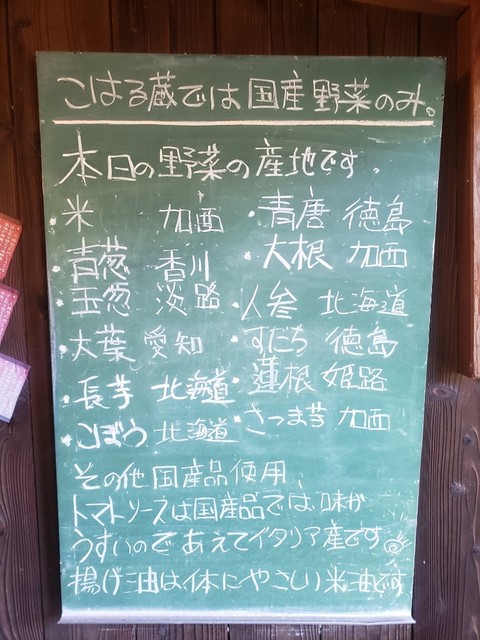 こはる蔵では国産野菜のみ。
本日の野菜の産地です。
・米 加西 ・青唐 徳島
・青葱 香川 ・大根 加西
・玉葱 淡路 ・人参 北海道
・大葉 愛知 ・すだち 徳島
・長芋 北海道 ・蓮根 姫路
・ごぼう 北海道 ・さつま芋 加西
その他国産品使用、
トマトソースは国産品では、味が
うすいので あえてイタリア産です
揚げ油は体にやさしい米油です